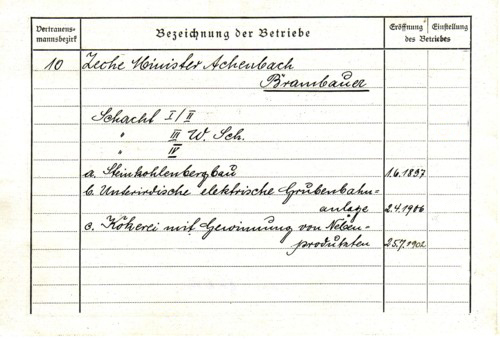 Vertrauens-
mannsbezirk
Bezeichnung der Betriebe
Eröffnung Einstellung
des Betriebes
10 Zeche Minister Achenbach
Brambauer
Schacht I/II
" III W. Sch.
" IV
a. Steinkohlenbergbau 1.6.1897
b. Unterirdische elektrische Grubenbahn-
anlage 2.4.1906
c. Kokerei mit Gewinnung von Neben-
produkten 25.7.1902